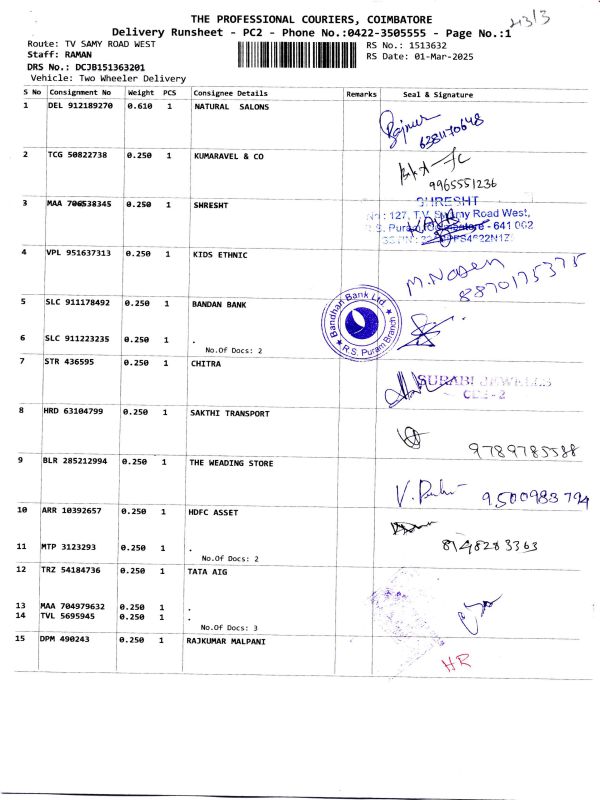 THE PROFESSIONAL COURIERS, COIMBATORE
Delivery Runsheet - PC2 - Phone No.:0422-3505555 - Page No.:1
Route: TV SAMY ROAD WEST RS No.: 1513632
Staff: RAMAN RS Date: 01-Mar-2025
DRS No.: DCJB151363201
Vehicle: Two Wheeler Delivery
S No Consignment No Weight PCS Consignee Details Remarks Seal & Signature
1 DEL 912189270 0.610 1 NATURAL SALONS
6281170648
2 TCG 50822738 0.250 1 KUMARAVEL & CO
9965551236
3 MAA 706538345 0.250 1 SHRESHT
SHRESHT
No : 127, T.V. Swamy Road West,
R.S. Puram, Coimbatore - 641 002
4 VPL 951637313 0.250 1 KIDS ETHNIC
M. Nasen 8870175375
5 SLC 911178492 0.250 1 BANDAN BANK
Bandhan Bank Ltd.
★ R.S. Puram Branch ★
6 SLC 911223235 0.250 1 .
No.Of Docs: 2
7 STR 436595 0.250 1 CHITRA
SURABI JEWELLS
CBE-2
8 HRD 63104799 0.250 1 SAKTHI TRANSPORT
9789785588
9 BLR 285212994 0.250 1 THE WEADING STORE
9500983794
10 ARR 10392657 0.250 1 HDFC ASSET
11 MTP 3123293 0.250 1 .
8148283363
No.Of Docs: 2
12 TRZ 54184736 0.250 1 TATA AIG
13 MAA 704979632 0.250 1 .
14 TVL 5695945 0.250 1 .
No.Of Docs: 3
15 DPM 490243 0.250 1 RAJKUMAR MALPANI
HR